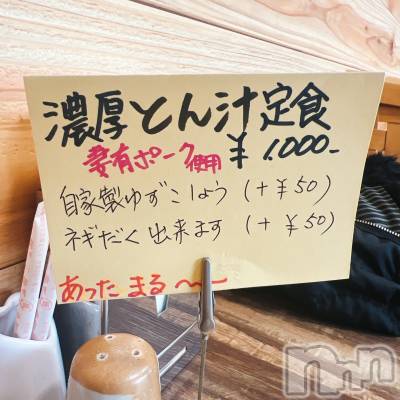 濃厚とん汁定食
妻有ポーク使用 ¥1,000-
自家製ゆずこしょう (+¥50)
ネギだく出来ます (+¥50)
あったまる〜〜